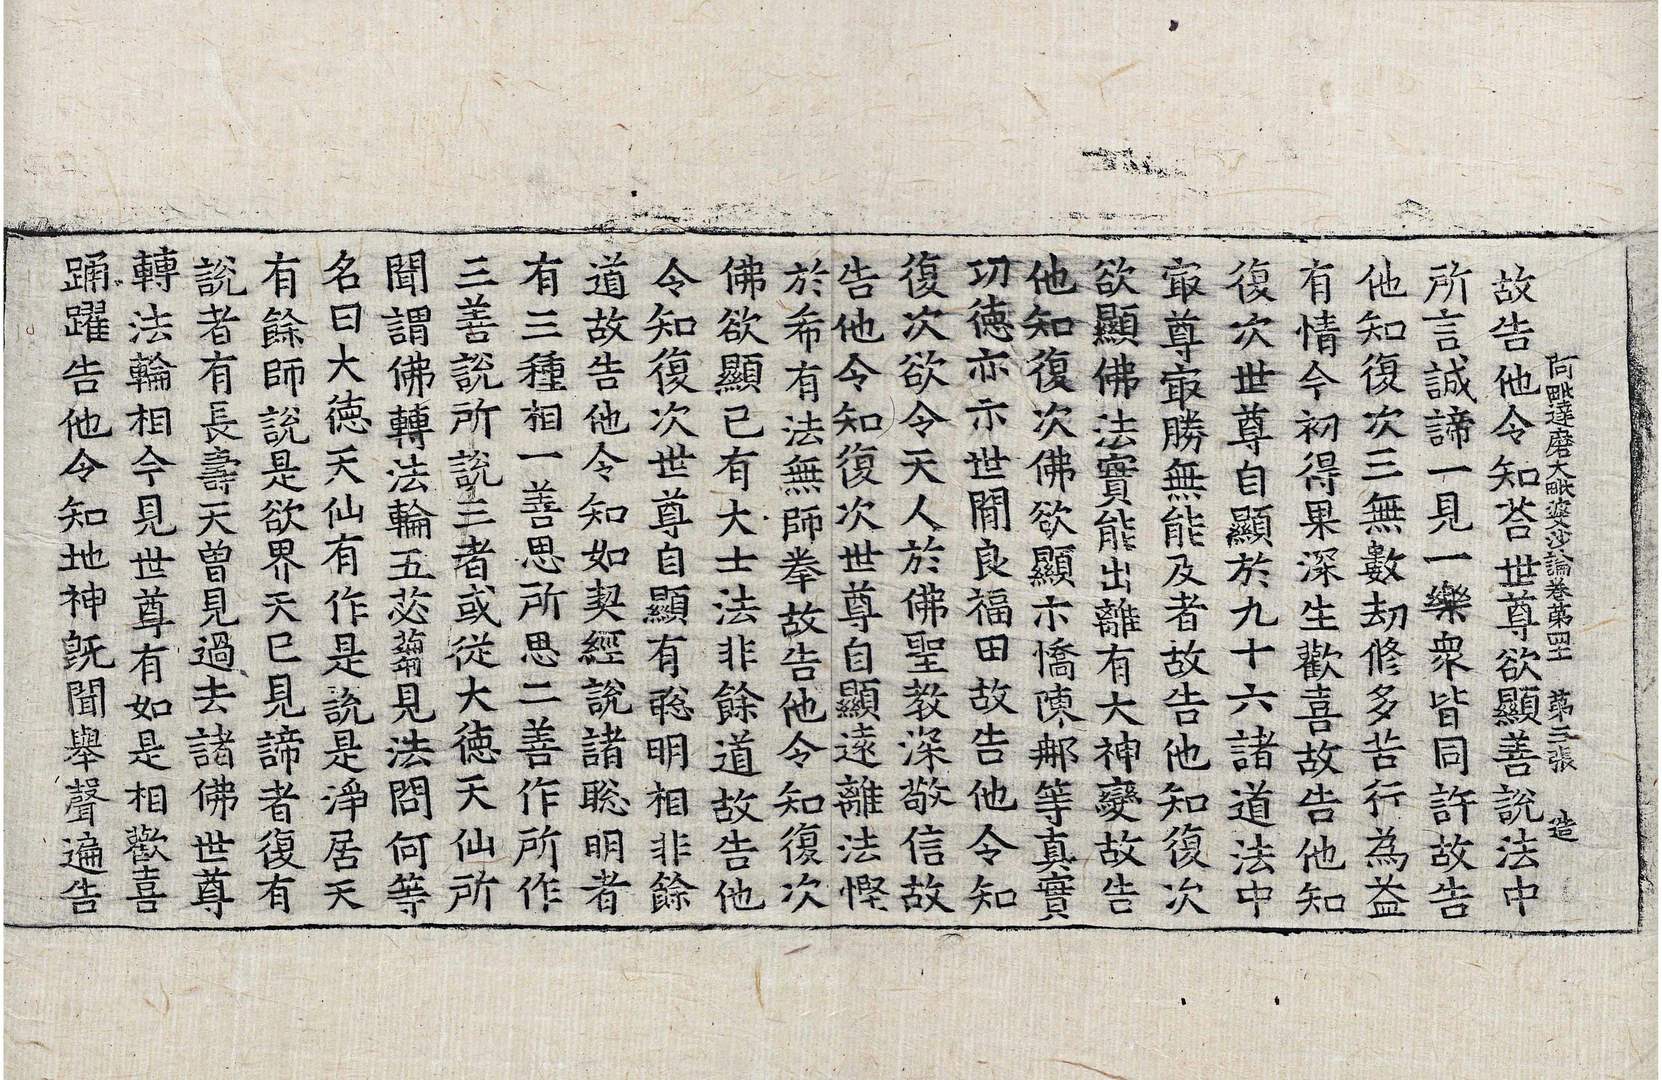 阿毗達磨大毗婆沙論卷第 第三張 造
故告他令知荅世尊欲顯善說法中
所言誠諦一見一樂衆皆同許故告
他知復次三無數劫修多苦行為益
有情今初得果深生歡喜故告他知
復次世尊自顯於九十六諸道法中
㝡尊㝡勝無能及者故告他知復次
欲顯佛法實能出離有大神變故告
他知復次佛欲顯示憍陳那等真實
功德亦示世間良福田故告他令知
復次欲令天人於佛聖教深敬信故
告他令知復次世尊自顯遠離法慳
於希有法無師拳故告他令知復次
佛欲顯已有大士法非餘道故告他
令知復次世尊自顯有聡明相非餘
道故告他令知如契經說諸聡明者
有三種相一善思所思二善作所作
三善說所說三者或從大德天仙所
聞謂佛轉法輪五苾芻見法問何等
名曰大德天仙有作是說是淨居天
有餘師說是欲界天已見諦者復有
說者有長壽天曾見過去諸佛世尊
轉法輪相今見世尊有如是相歡喜
踊躍告他令知地神旣聞舉聲遍告